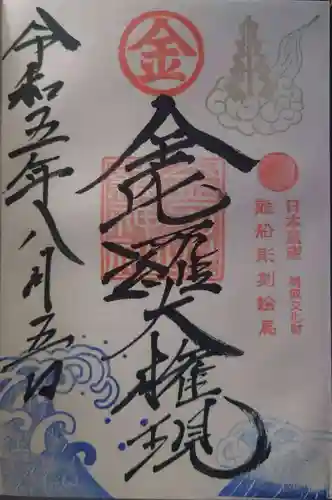 金
日本遺産 構成文化財
難船彫刻絵馬
金毘羅大権現
令和五年八月五日